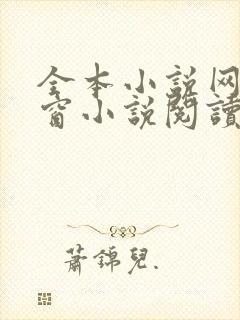 全本小説网
窗小説閱讀
蕭錦兒.